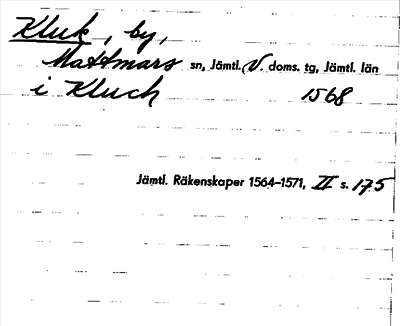 Kluk, by,
Mattmars sn, Jämtl. V. doms. tg, Jämtl. län
i Kluch 1568
Jämtl. Räkenskaper 1564–1571, II s. 175